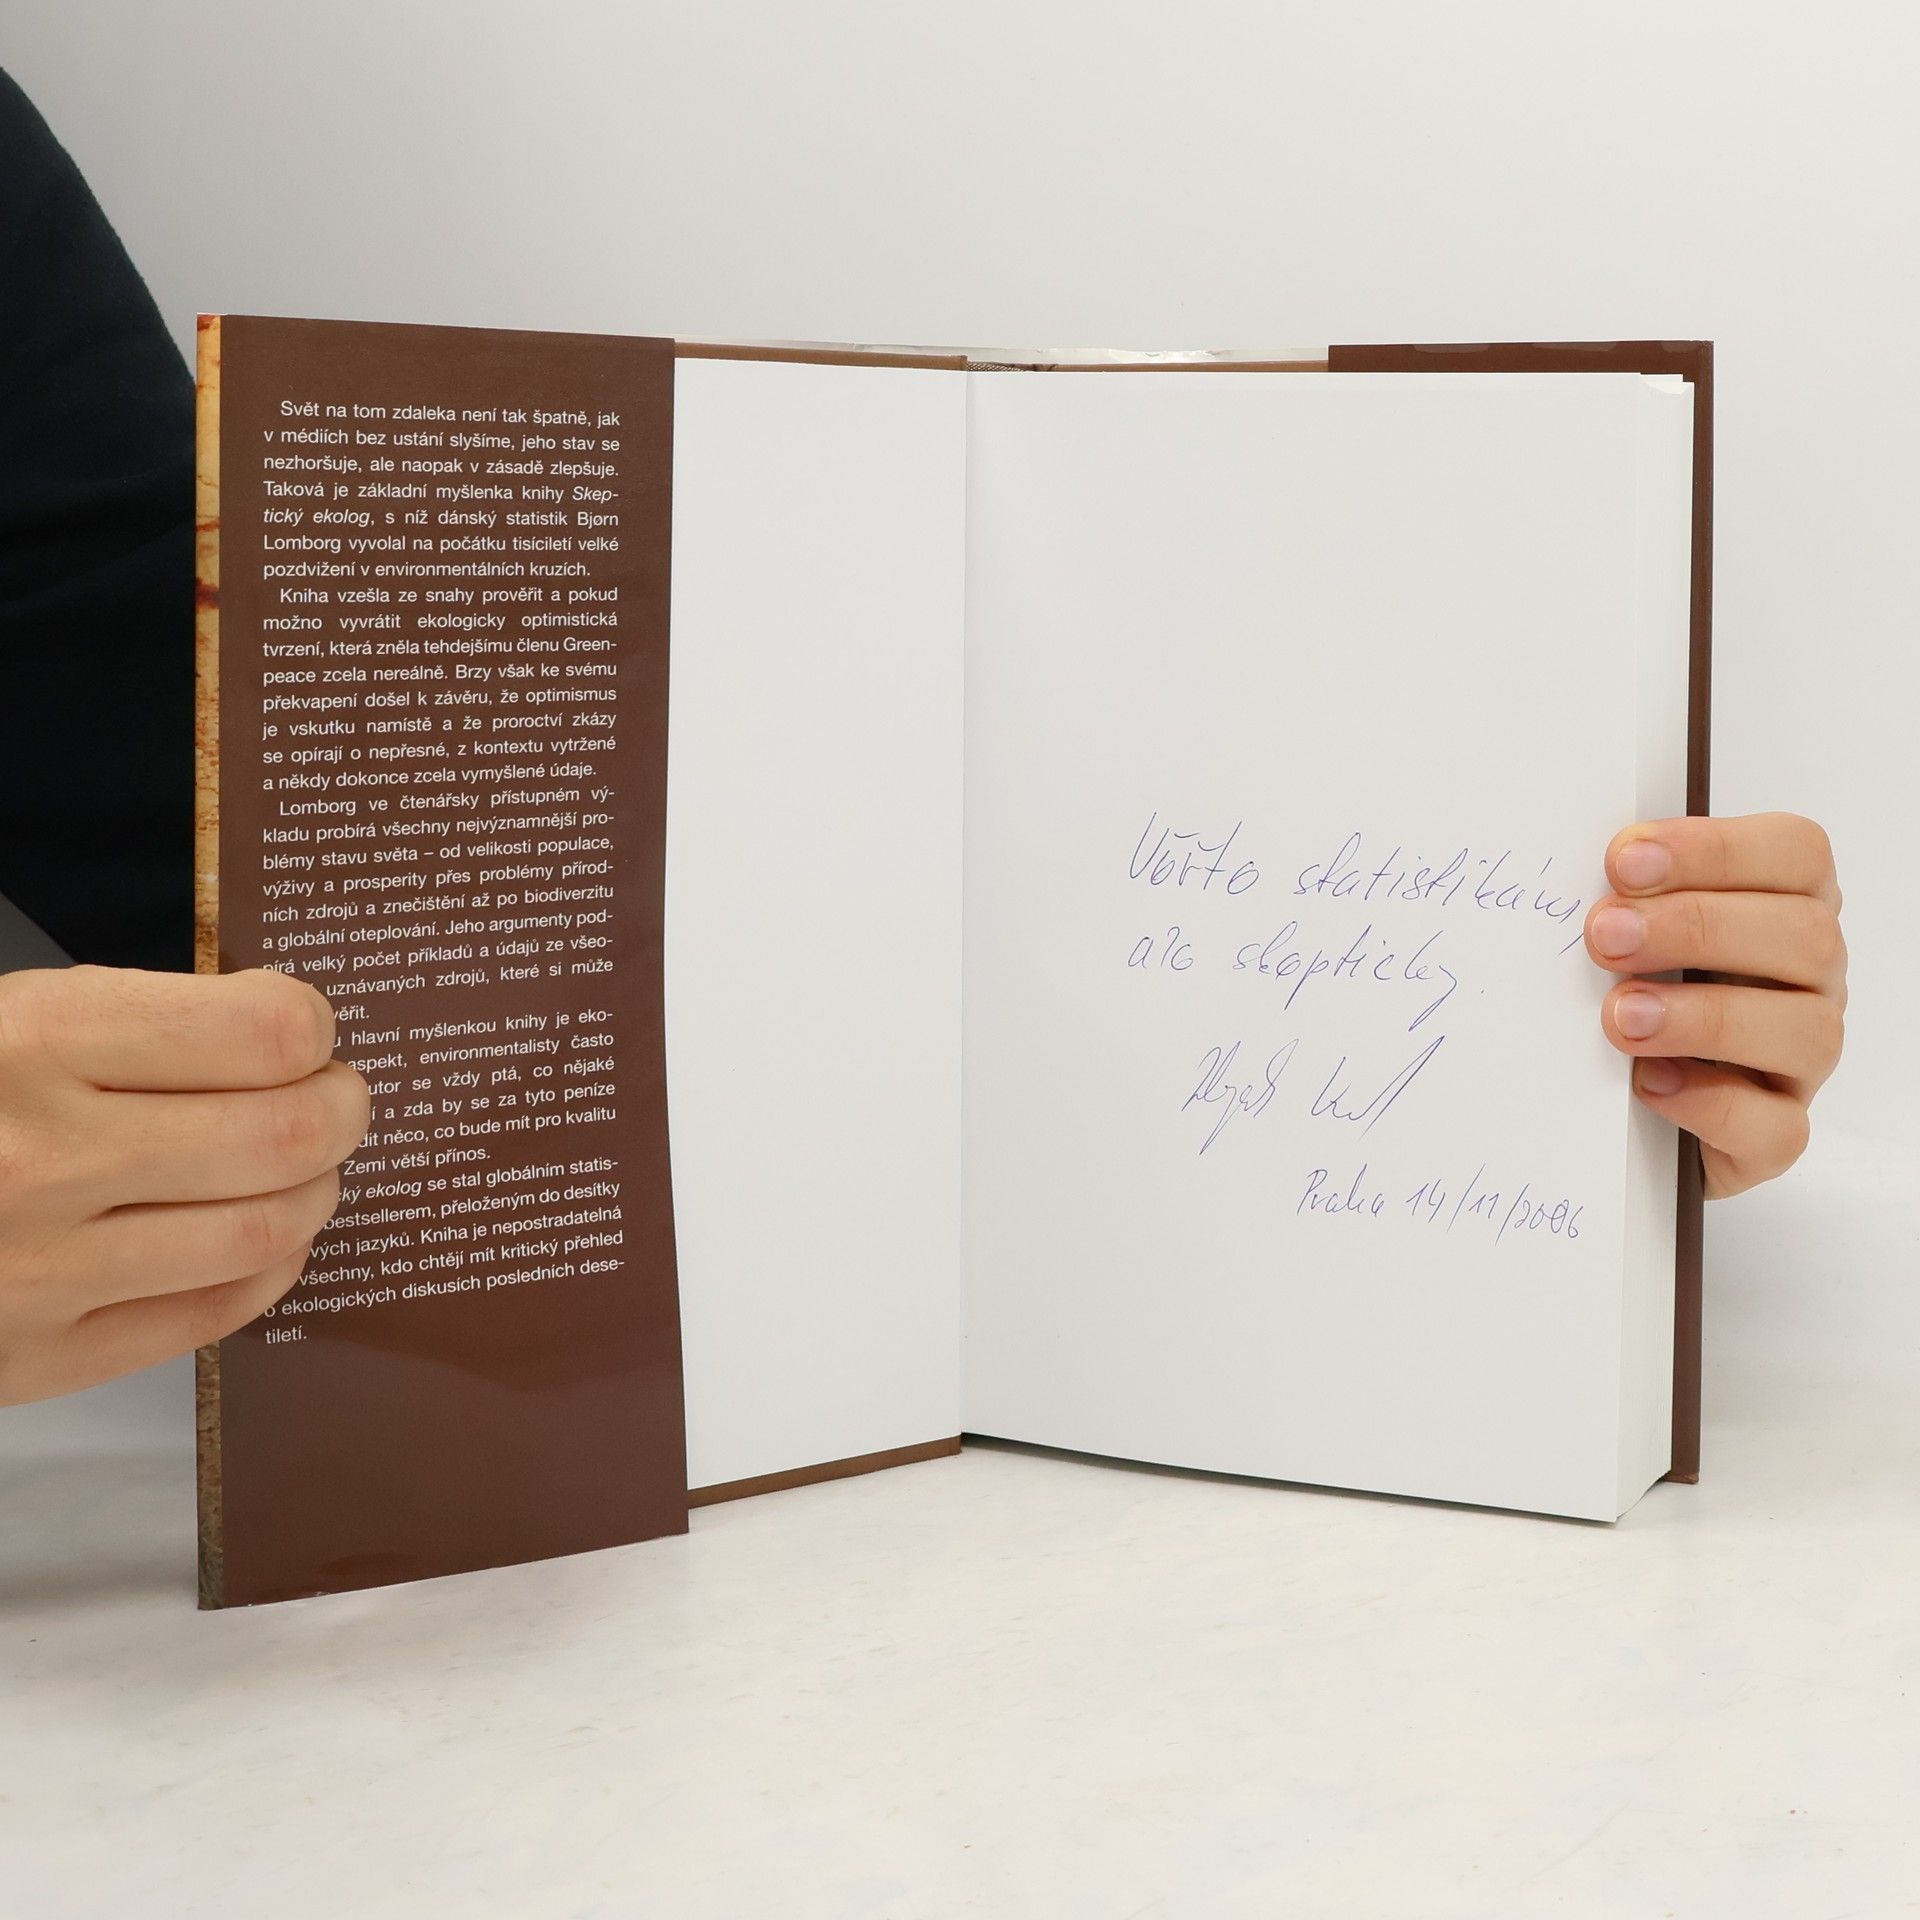 Svět na tom zdaleka není tak špatně, jak
v médiích bez ustání slyšíme, jeho stav se
nezhoršuje, ale naopak v zásadě zlepšuje.
Taková je základní myšlenka knihy Skep-
tický ekolog, s níž dánský statistik Bjørn
Lomborg vyvolal na počátku tisíciletí velké
pozdvižení v environmentálních kruzích.
Kniha vzešla ze snahy prověřit a pokud
možno vyvrátit ekologicky optimistická
tvrzení, která zněla tehdejšímu členu Green-
peace zcela nereálně. Brzy však ke svému
překvapení došel k závěru, že optimismus
je vskutku namístě a že proroctví zkázy
se opírají o nepřesné, z kontextu vytržené
a někdy dokonce zcela vymyšlené údaje.
Lomborg ve čtenářsky přístupném vý-
kladu probírá všechny nejvýznamnější pro-
blémy stavu světa – od velikosti populace,
výživy a prosperity přes problémy přírod-
ních zdrojů a znečištění až po biodiverzitu
a globální oteplování. Jeho argumenty pod-
pírá velký počet příkladů a údajů ze všeo-
uznávaných zdrojů, které si může
věřit.
hlavní myšlenkou knihy je eko-
aspekt, environmentalisty často
utor se vždy ptá, co nějaké
í a zda by se za tyto peníze
dit něco, co bude mít pro kvalitu
Zemi větší přínos.
ký ekolog se stal globálním statis-
bestsellerem, přeloženým do desítky
vých jazyků. Kniha je nepostradatelná
všechny, kdo chtějí mít kritický přehled
o ekologických diskusích posledních dese-
tiletí.
Věřte statistikám,
ale skepticky.
Praha 14/11/2006